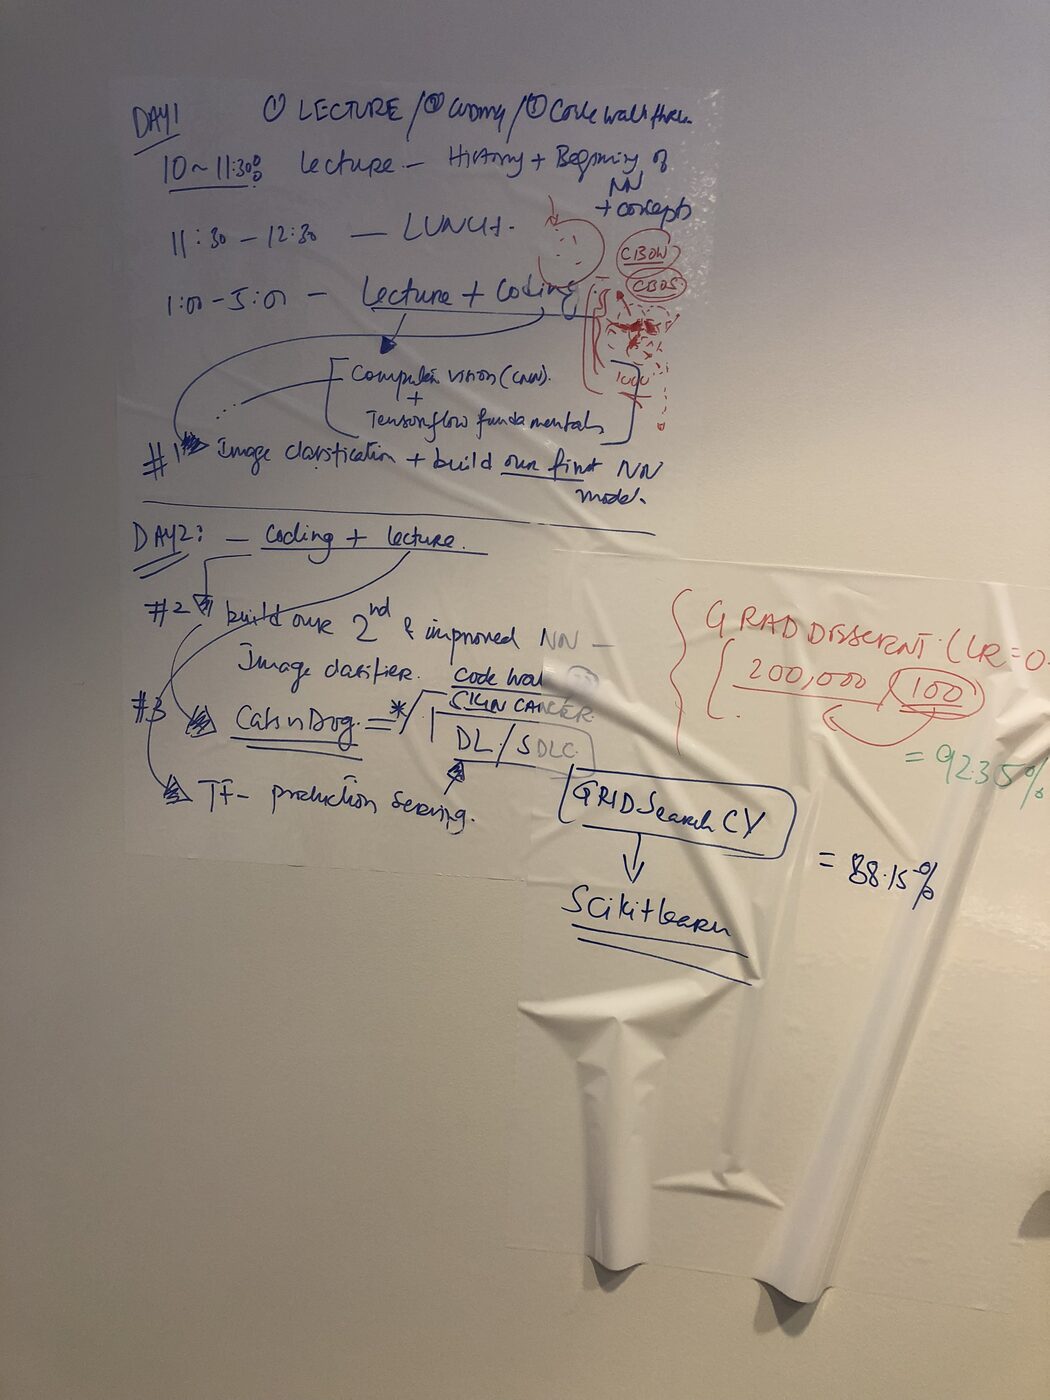 DAY1 ① LECTURE / ② Coding / ① Code walk thru.
10 ~ 11:30 Lecture - History + Beginning of
NN
+ concepts
11:30 - 12:30 — LUNCH.
CBOW
CBOS
1:00 - 5:00 - Lecture + Coding
1000
Computer vision (CNN).
+
Tensorflow fundamentals
#1 Image classification + build our first NN
model.
DAY2: - Coding + lecture.
#2 build our 2nd & improved NN -
Image clasifier. Code wal
#3 Cats n Dog = * SKIN CANCER
DL / SDLC
TF - production serving.
GRIDSearch CV
Scikit learn
GRAD DESSCENT (LR = 0.
200,000 / 100
= 92.35%
= 88.15%